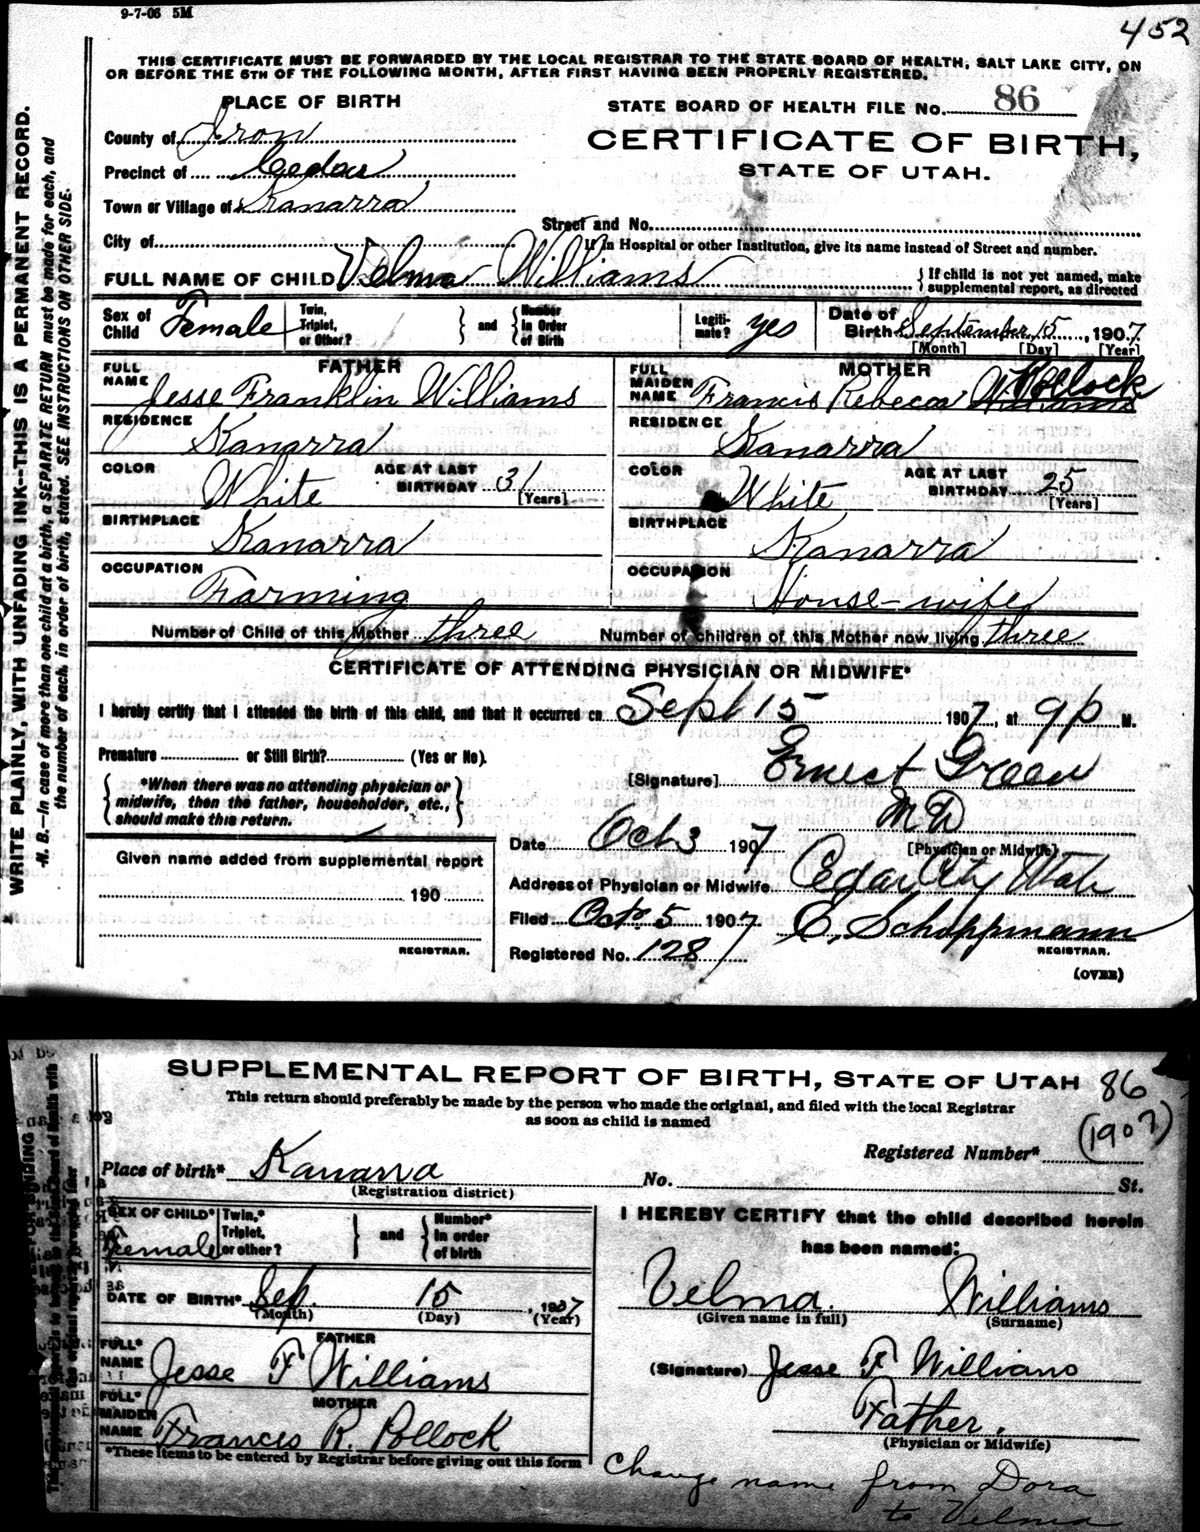 9-7-06 5M
452
THIS CERTIFICATE MUST BE FORWARDED BY THE LOCAL REGISTRAR TO THE STATE BOARD OF HEALTH, SALT LAKE CITY, ON
OR BEFORE THE 5TH OF THE FOLLOWING MONTH, AFTER FIRST HAVING BEEN PROPERLY REGISTERED.
WRITE PLAINLY, WITH UNFADING INK—THIS IS A PERMANENT RECORD.
N. B.—In case of more than one child at a birth, a SEPARATE RETURN must be made for each, and
the number of each, in order of birth, stated. SEE INSTRUCTIONS ON OTHER SIDE.
PLACE OF BIRTH
STATE BOARD OF HEALTH FILE No. 86
County of Iron
CERTIFICATE OF BIRTH,
Precinct of Cedar
STATE OF UTAH.
Town or Village of Kanarra
Street and No.
City of
If in Hospital or other Institution, give its name instead of Street and number.
FULL NAME OF CHILD Velma Williams
If child is not yet named, make
supplemental report, as directed
Sex of Child Female
Twin, Triplet, or Other?
and
Number in Order of Birth
Legiti-mate? yes
Date of Birth September 15, 1907
[Month] [Day] [Year]
FATHER
FULL NAME Jesse Franklin Williams
MOTHER
FULL MAIDEN NAME Francis Rebecca Williams Pollock
RESIDENCE Kanarra
RESIDENCE Kanarra
COLOR White AGE AT LAST BIRTHDAY 31 [Years]
COLOR White AGE AT LAST BIRTHDAY 25 [Years]
BIRTHPLACE Kanarra
BIRTHPLACE Kanarra
OCCUPATION Farming
OCCUPATION House-wife
Number of Child of this Mother three
Number of children of this Mother now living three
CERTIFICATE OF ATTENDING PHYSICIAN OR MIDWIFE*
I hereby certify that I attended the birth of this child, and that it occurred on Sept 15 1907, at 9 p M.
Premature or Still Birth? (Yes or No).
*When there was no attending physician or
midwife, then the father, householder, etc.,
should make this return.
[Signature] Ernest Green
M D
[Physician or Midwife]
Date Oct 3 1907
Given name added from supplemental report
190
REGISTRAR.
Address of Physician or Midwife Cedar City Utah
Filed Oct. 5 1907 E. Schoppmann
REGISTRAR.
Registered No. 128
(OVER)
SUPPLEMENTAL REPORT OF BIRTH, STATE OF UTAH 86
This return should preferably be made by the person who made the original, and filed with the local Registrar
as soon as child is named
(1907)
Registered Number*
Place of birth* Kanarra No. St.
(Registration district)
SEX OF CHILD* Female
Twin,* Triplet, or other?
and
Number* in order of birth
I HEREBY CERTIFY that the child described herein
has been named:
DATE OF BIRTH* Sep. 15, 1907
(Month) (Day) (Year)
Velma. Williams
(Given name in full) (Surname)
FATHER
FULL* NAME Jesse F Williams
(Signature) Jesse F Williams
MOTHER
FULL* MAIDEN NAME Francis R. Pollock
Father.
(Physician or Midwife)
*These items to be entered by Registrar before giving out this form
Change name from Dora
to Velma